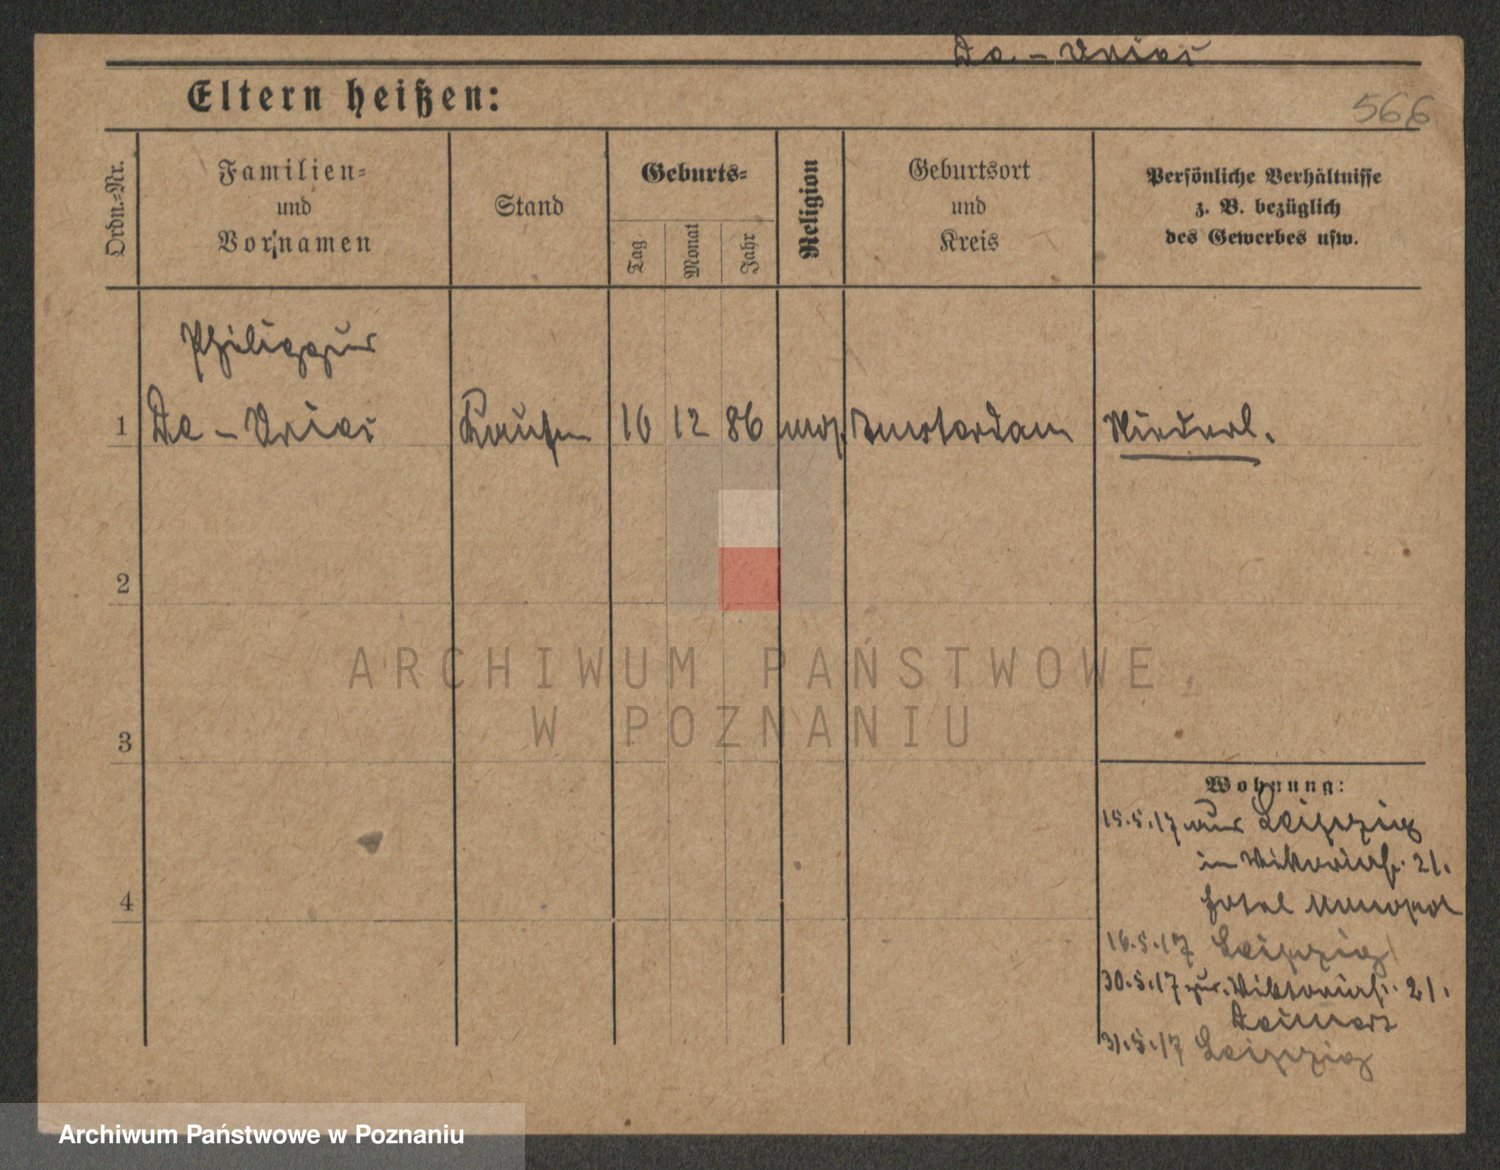 De-Vries
Eltern heißen:
566
Ordn.-Nr.
Familien-
und
Vornamen
Stand
Geburts-
Tag
Monat
Jahr
Religion
Geburtsort
und
Kreis
Persönliche Verhältnisse
z. B. bezüglich
des Gewerbes usw.
Philippus
1 De-Vries Kaufm 10 12 86 mos. Amsterdam Niederl.
2
3
4
Wohnung:
15.5.17 aus Leipzig
in Viktoriastr. 21.
Hotel Monopol
16.5.17 Leipzig
30.5.17 zur. Viktoriastr. 21.
31.5.17 Leipzig
ARCHIWUM PAŃSTWOWE
W POZNANIU
Archiwum Państwowe w Poznaniu